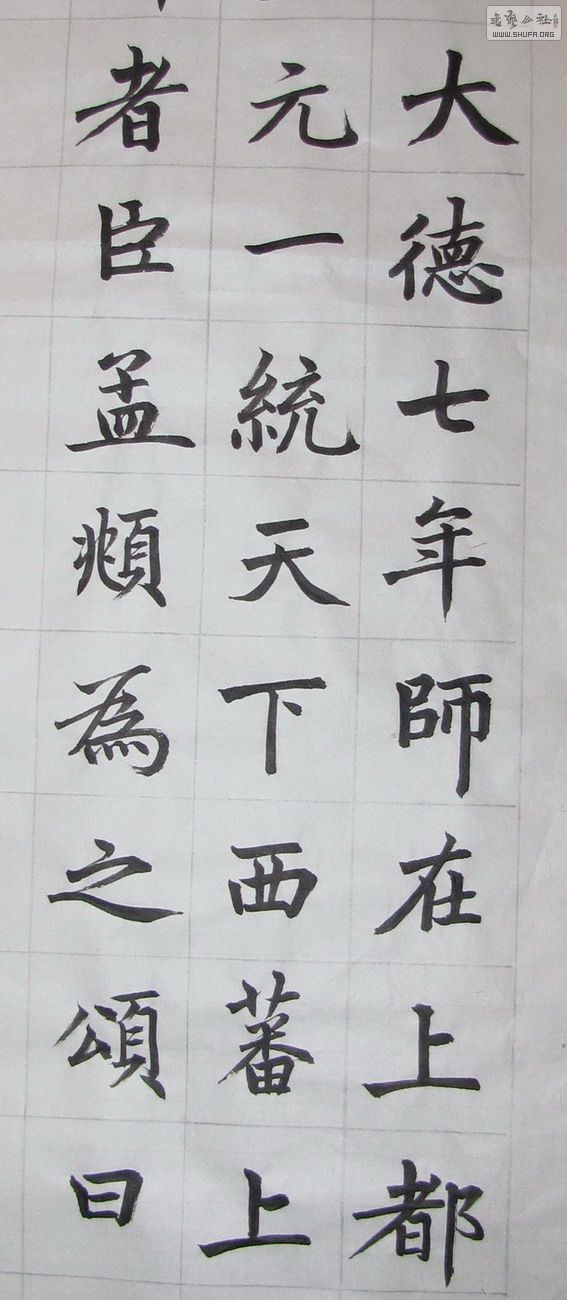 大德七年師在上都
元一統天下西蕃上
者臣孟頫為之頌曰
書藝公社
WWW.SHUFA.ORG